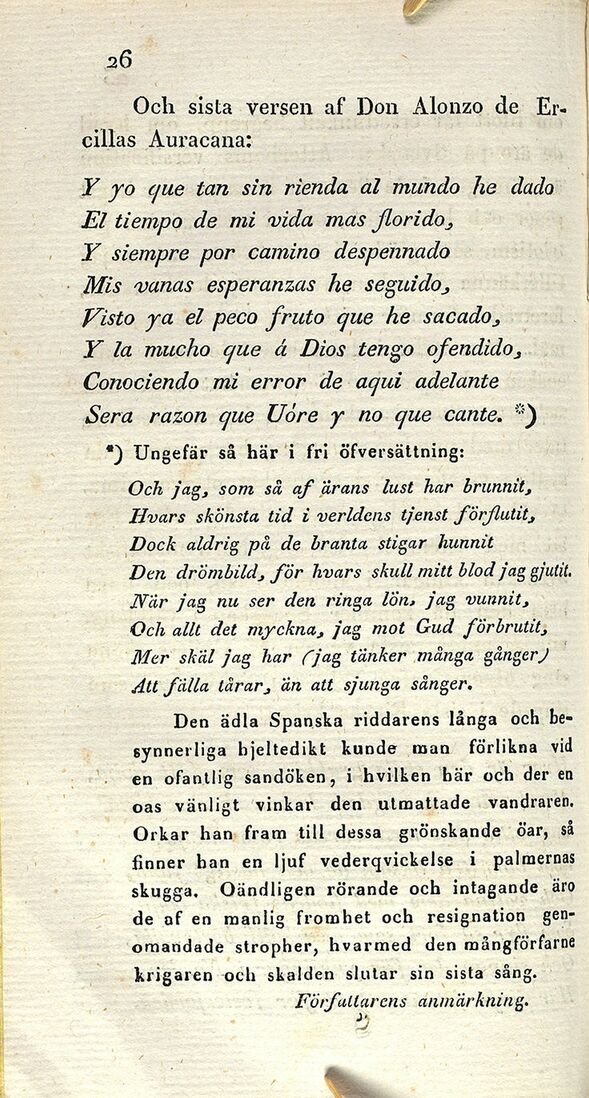 26
Och sista versen af Don Alonzo de Er-
cillas Auracana:
Y yo que tan sin rienda al mundo he dado
El tiempo de mi vida mas florido,
Y siempre por camino despeñnado
Mis vanas esperanzas he seguido,
Visto ya el peco fruto que he sacado,
Y la mucho que á Dios tengo ofendido,
Conociendo mi error de aqui adelante
Sera razon que Uóre y no que cante. *)
*) Ungefär så här i fri öfversättning:
Och jag, som så af ärans lust har brunnit,
Hvars skönsta tid i verldens tjenst förflutit,
Dock aldrig på de branta stigar hunnit
Den drömbild, för hvars skull mitt blod jag gjutit.
När jag nu ser den ringa lön, jag vunnit,
Och allt det myckna, jag mot Gud förbrutit,
Mer skäl jag har (jag tänker många gånger)
Att fälla tårar, än att sjunga sånger.
Den ädla Spanska riddarens långa och be-
synnerliga hjeltedikt kunde man förlikna vid
en ofantlig sandöken, i hvilken här och der en
oas vänligt vinkar den utmattade vandraren.
Orkar han fram till dessa grönskande öar, så
finner han en ljuf vederqvickelse i palmernas
skugga. Oändligen rörande och intagande äro
de af en manlig fromhet och resignation gen-
omandade stropher, hvarmed den mångförfarne
krigaren och skalden slutar sin sista sång.
Författarens anmärkning.